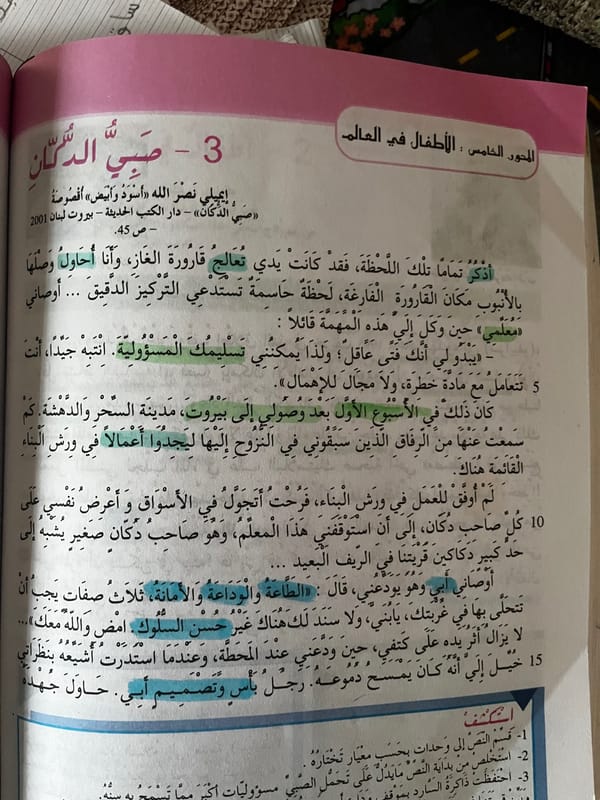 المحور الخامس : الأطفال في العالم
3 - صَبِيُّ الدُّكَّانِ
إيميلي نَصْرَ الله «أسْوَدُ وَأبْيَض» أقْصُوصَةُ
«صَبِيُّ الدُّكَّانَ» – دار الكتب الحديثة – بيروت لبنان 2001
– ص 45.
أَذْكُرُ تَمَامًا تِلْكَ اللَّحْظَةَ، فَقَدْ كَانَتْ يَدِي تُعَالِجُ قَارُورَةَ الغَازِ، وَأَنَا أُحَاوِلُ وَصْلَهَا
بِالأُنْبُوبِ مَكَانَ القَارُورَةِ الفَارِغَةِ، لَحْظَةً حَاسِمَةً تَسْتَدْعِي التَّرْكِيزَ الدَّقِيقَ ... أَوْصَانِي
«مُعَلِّمِي» حِينَ وَكَلَ إِلَيَّ هَذِهِ الْمُهِمَّةَ قَائِلاً :
– «يَبْدُو لِي أَنَّكَ فَتًى عَاقِلٌ؛ وَلِذَا يُمكِنُنِي تَسْلِيمُكَ الْمَسْؤُولِيَّةَ. انْتَبِهْ جَيِّدًا، أَنْتَ
5 تَتَعَامَلُ مَعَ مَادَّةٍ خَطِرَةٍ، وَلاَ مَجَالَ لِلإِهْمَالِ».
كَانَ ذَلِكَ فِي الأُسْبُوعِ الأَوَّلِ بَعْدَ وُصُولِي إِلَى بَيْرُوتَ، مَدِينَةِ السِّحْرِ وَالدَّهْشَةِ. كَمْ
سَمِعْتُ عَنْهَا مِنَ الرِّفَاقِ الَّذِينَ سَبَقُونِي فِي النُّزُوحِ إِلَيْهَا لِيَجِدُوا أَعْمَالاً فِي وِرَشِ الْبِنَاءِ
القَائِمَةِ هُنَاكَ.
لَمْ أُوَفَّقْ لِلْعَمَلِ فِي وِرَشِ الْبِنَاءِ، فَرُحْتُ أَتَجَوَّلُ فِي الأَسْوَاقِ وَ أَعْرِضُ نَفْسِي عَلَى
10 كُلِّ صَاحِبِ دُكَّانٍ، إِلَى أَنِ اسْتَوْقَفَنِي هَذَا الْمُعَلِّمُ، وَهُوَ صَاحِبُ دُكَّانٍ صَغِيرٍ يُشْبِهُ إِلَى
حَدٍّ كَبِيرٍ دَكَاكِينَ قَرْيَتِنَا فِي الرِّيفِ الْبَعِيدِ ...
أَوْصَانِي أَبِي وَهُوَ يُوَدِّعُنِي، قَالَ : «الطَّاعَةُ وَالْوَدَاعَةُ وَالأَمَانَةُ، ثَلاَثُ صِفَاتٍ يَجِبُ أَنْ
تَتَحَلَّى بِهَا فِي غُرْبَتِكَ، يَابُنَيَّ، وَلاَ سَنَدَ لَكَ هُنَاكَ غَيْرُ حُسْنِ السُّلُوكِ. امْضِ وَاللَّهُ مَعَكَ»...
لاَ يَزَالُ أَثَرُ يَدِهِ عَلَى كَتِفِي، حِينَ وَدَّعَنِي عِنْدَ الْمَحَطَّةِ، وَعِنْدَمَا اسْتَدَرْتُ أُشَيِّعُهُ بِنَظَرَاتِي
15 خُيِّلَ إِلَيَّ أَنَّهُ كَانَ يَمْسَحُ دُمُوعَهُ. رَجُلُ بَأْسٍ وَتَصْمِيمٍ أَبِي. حَاوَلَ جُهْدَهُ
اسْتَكْشِفُ
1- قَسِّمِ النَّصَّ إِلَى وَحَدَاتٍ بِحَسَبِ مِعْيَارٍ تَخْتَارُهُ.
2- اسْتَخْلِصْ مِنْ بِدَايَةِ النَّصِّ مَايَدُلُّ عَلَى تَحَمُّلِ الصَّبِيِّ مَسْؤُولِيَّاتٍ أَكْبَرَ مِمَّا تَسْمَحُ بِهِ سِنُّهُ.
3- احْتَفَظَتْ ذَاكِرَةُ السَّارِدِ بِمَوْقِفِ